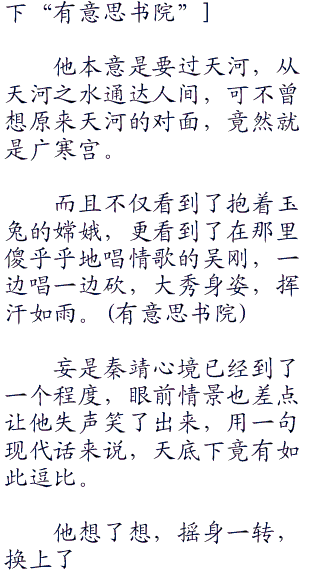 下“有意思书院”]
他本意是要过天河，从
天河之水通达人间，可不曾
想原来天河的对面，竟然就
是广寒宫。
而且不仅看到了抱着玉
兔的嫦娥，更看到了在那里
傻乎乎地唱情歌的吴刚，一
边唱一边砍，大秀身姿，挥
汗如雨。(有意思书院)
妄是秦靖心境已经到了
一个程度，眼前情景也差点
让他失声笑了出来，用一句
现代话来说，天底下竟有如
此逗比。
他想了想，摇身一转，
换上了